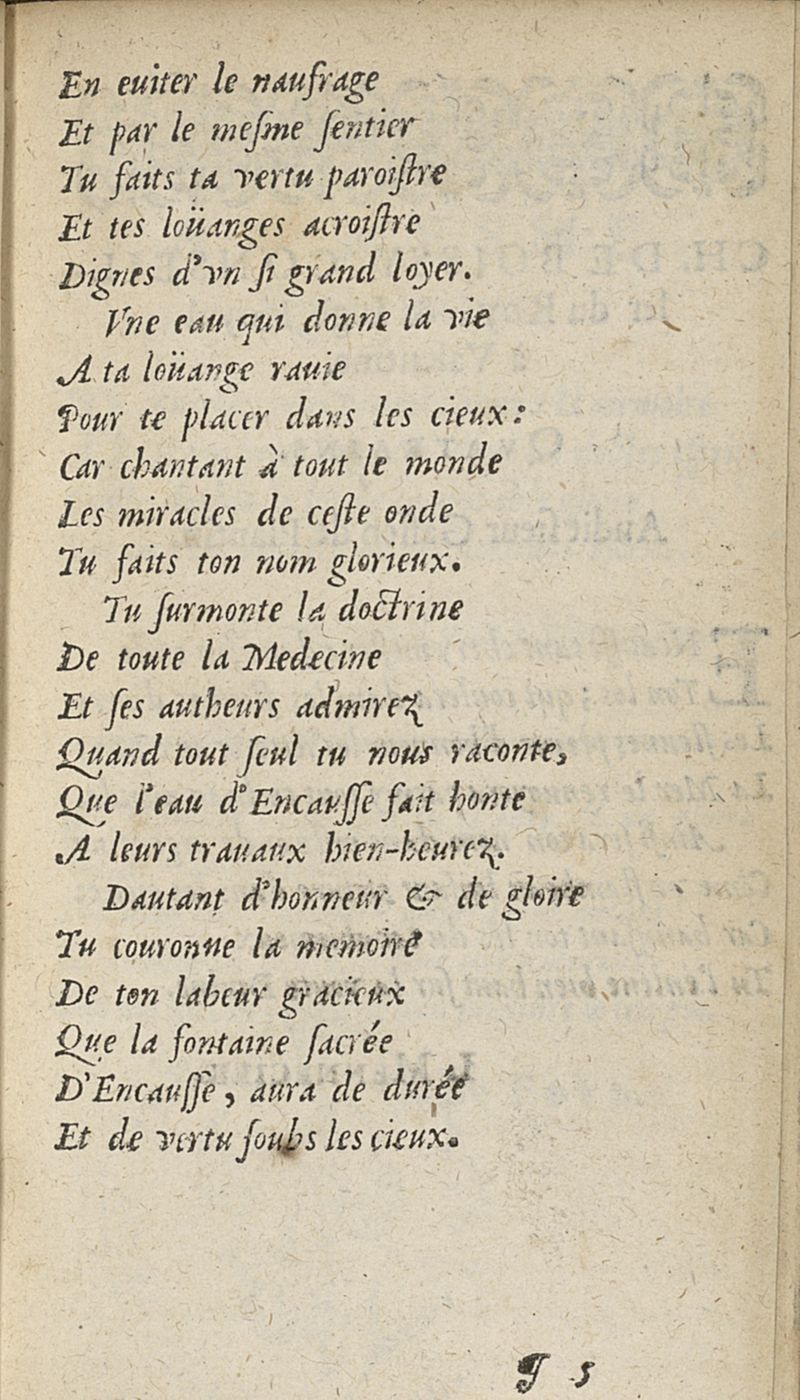 En euiter le naufrage
Et par le meſme ſentier
Tu faits ta vertu paroiſtre
Et tes loüanges acroiſtre
Dignes d'vn ſi grand loyer.
Vne eau qui donne la vie
A ta loüange rauie
Pour te placer dans les cieux:
Car chantant à tout le monde
Les miracles de ceſte onde
Tu faits ton nom glorieux.
Tu ſurmonte la doctrine
De toute la Medecine
Et ſes autheurs admirez
Quand tout ſeul tu nous raconte,
Que l'eau d'Encauſſe fait honte
A leurs trauaux bien-heurez.
Dautant d'honneur & de gloire
Tu couronne la memoire
De ton labeur gracieux
Que la fontaine ſacrée
D'Encauſſe, aura de durée
Et de vertu ſoubs les cieux.
ꝯ 5